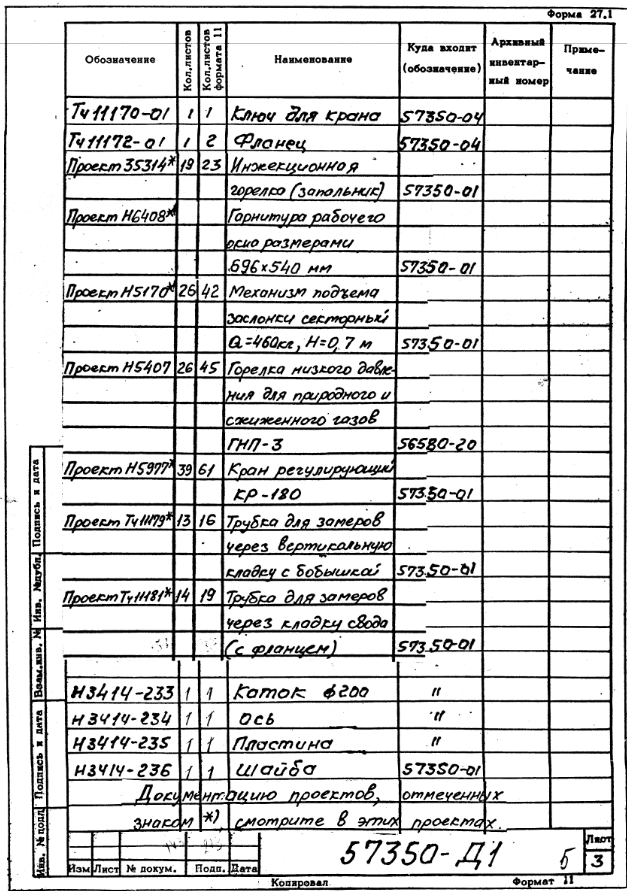 Форма 27.1
Обозначение | Кол.листов | Кол.листов формата 11 | Наименование | Куда входит (обозначение) | Архивный инвентарный номер | Примечание
Тч11170-01 1 1 Ключ для крана 57350-04
Тч11172-01 1 2 Фланец 57350-04
Проект 35314* 19 23 Инжекционная
горелка (запальник) 57350-01
Проект Н6408* Гарнитура рабочего
окна размерами
696×540 мм 57350-01
Проект Н5170* 26 42 Механизм подъема
заслонки секторный
Q=460кг, H=0,7 м 57350-01
Проект Н5407 26 45 Горелка низкого давле-
ния для природного и
сжиженного газов
ГНП-3 56580-20
Проект Н5977* 39 61 Кран регулирующий
КР-180 57350-01
Проект Тч11179* 13 16 Трубка для замеров
через вертикальную
кладку с бобышкой 57350-01
Проект Тч11181* 14 19 Трубка для замеров
через кладку свода
(с фланцем) 57350-01
Н3414-233 1 1 Каток ф200 "
Н3414-234 1 1 Ось "
Н3414-235 1 1 Пластина "
Н3414-236 1 1 Шайба 57350-01
Документацию проектов, отмеченных
знаком *) смотрите в этих проектах.
57350-Д1
Б
Лист
3
Изм Лист № докум. Подп. Дата
Копировал Формат 11
Инв. № подл. Подпись и дата Взам.инв. № Инв. №дубл. Подпись и дата